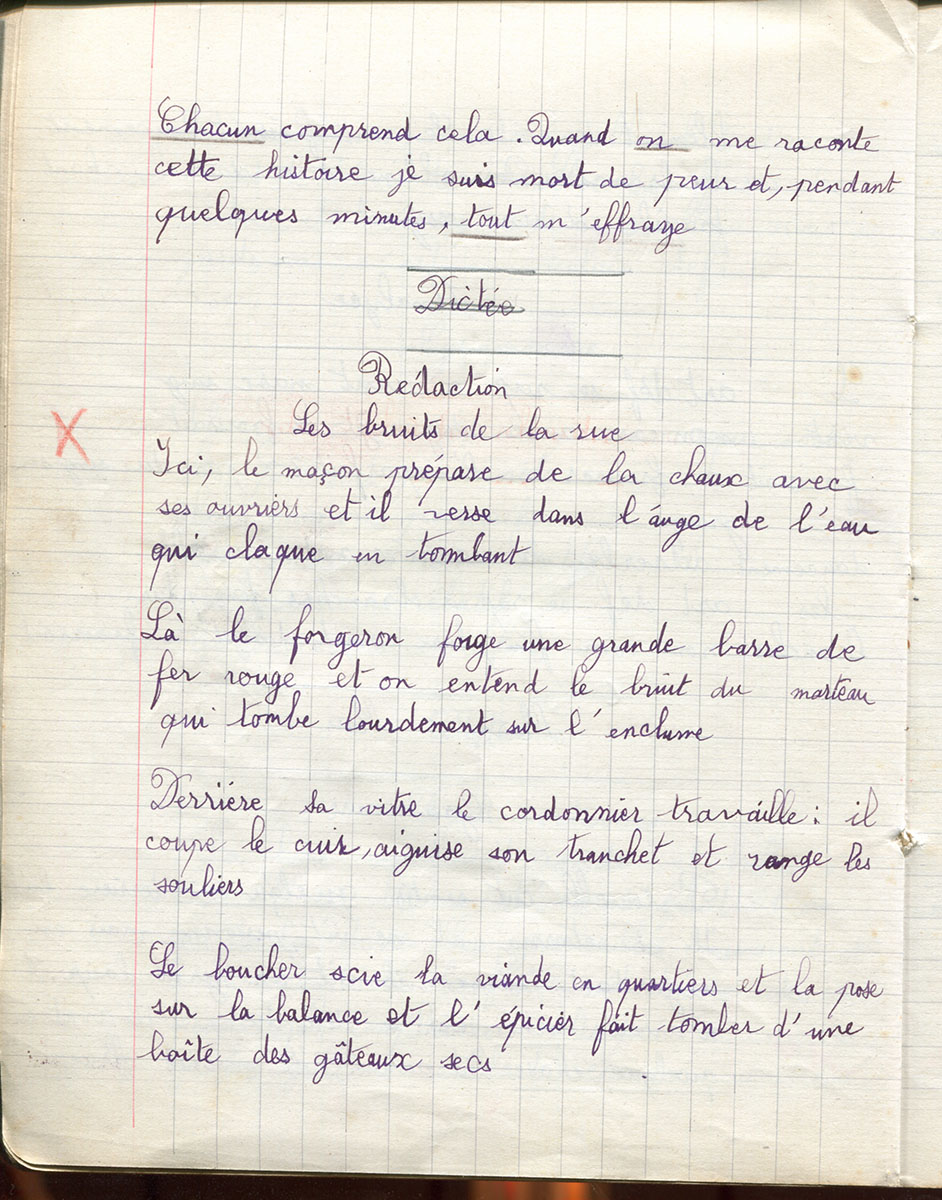 Chacun comprend cela. Quand on me raconte
cette histoire je suis mort de peur et, pendant
quelques minutes, tout m'effraye
Dictée
Rédaction
Les bruits de la rue
X
Ici, le maçon prépare de la chaux avec
ses ouvriers et il verse dans l'auge de l'eau
qui claque en tombant
Là le forgeron forge une grande barre de
fer rouge et on entend le bruit du marteau
qui tombe lourdement sur l'enclume
Derriére sa vitre le cordonnier travaille : il
coupe le cuir, aiguise son tranchet et range les
souliers
Le boucher scie la viande en quartiers et la pose
sur la balance et l'épicier fait tomber d'une
boîte des gâteaux secs